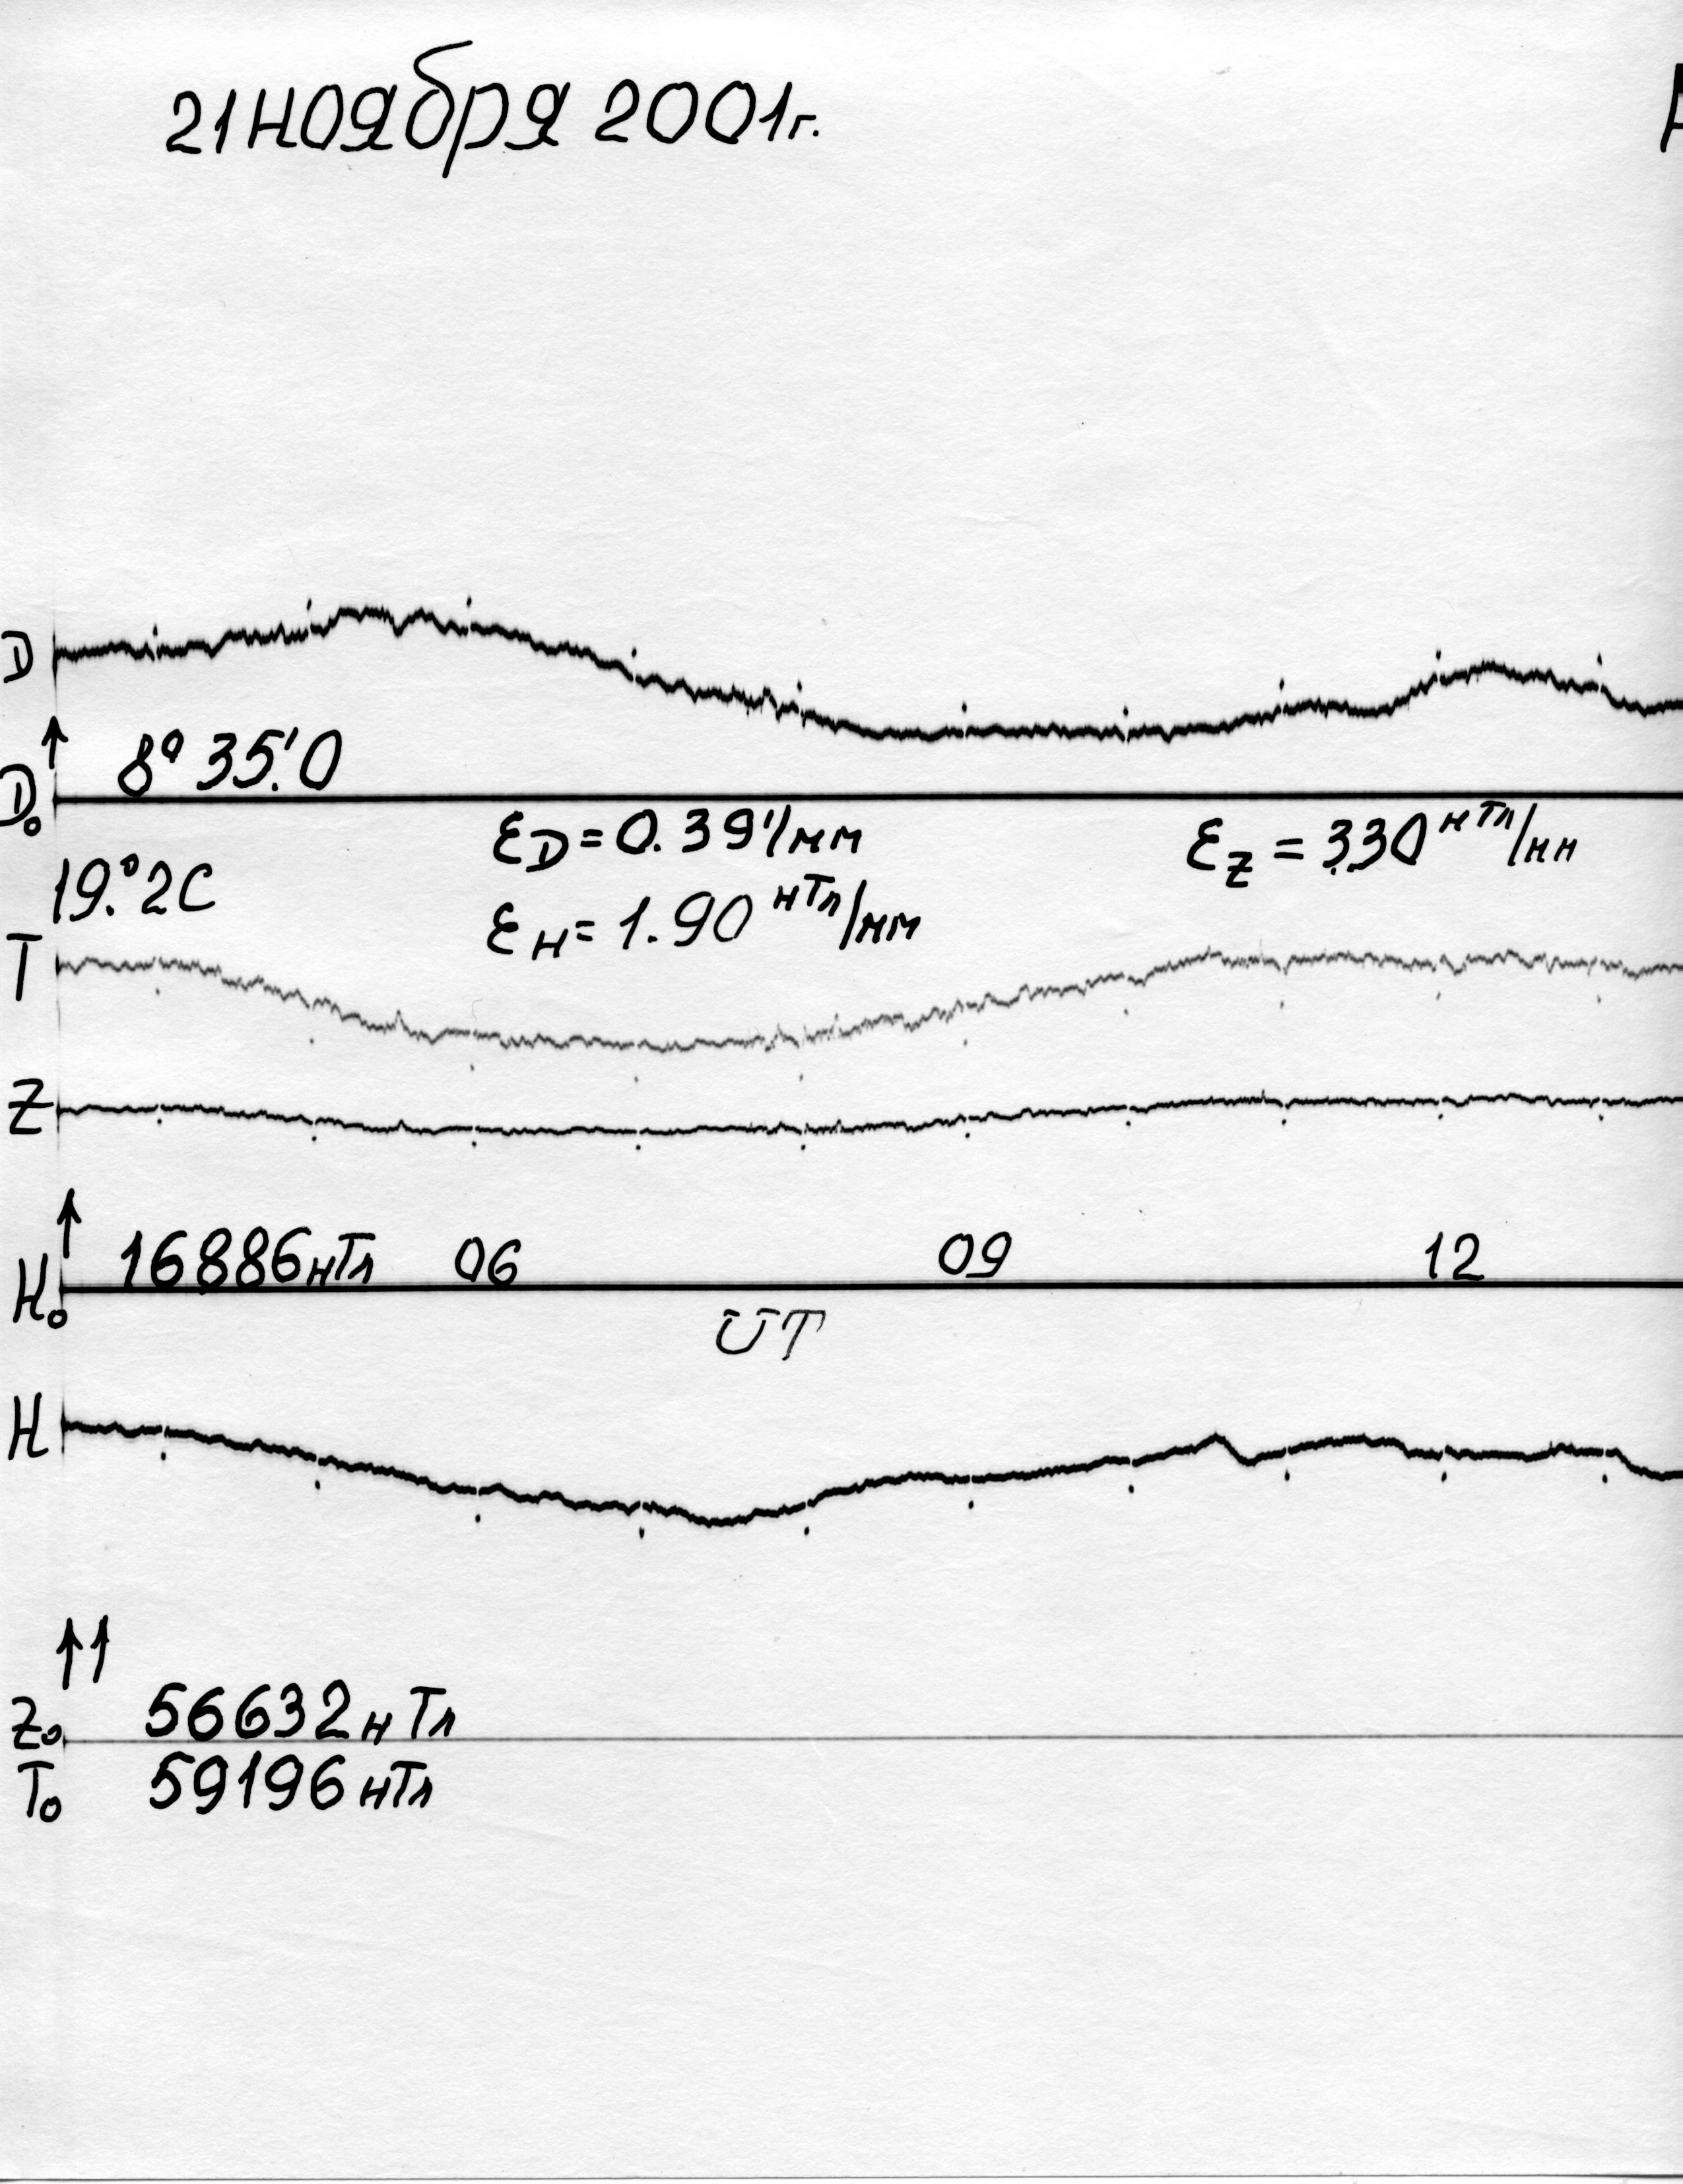 21 ноября 2001г.
D
8° 35.'0
D₀
εD = 0.39'/мм
εZ = 3.30 нТл/мм
19.°2С
εH = 1.90 нТл/мм
T
Z
16886 нТл 06 09 12
H₀
UT
H
Z₀ 56632 нТл
T₀ 59196 нТл